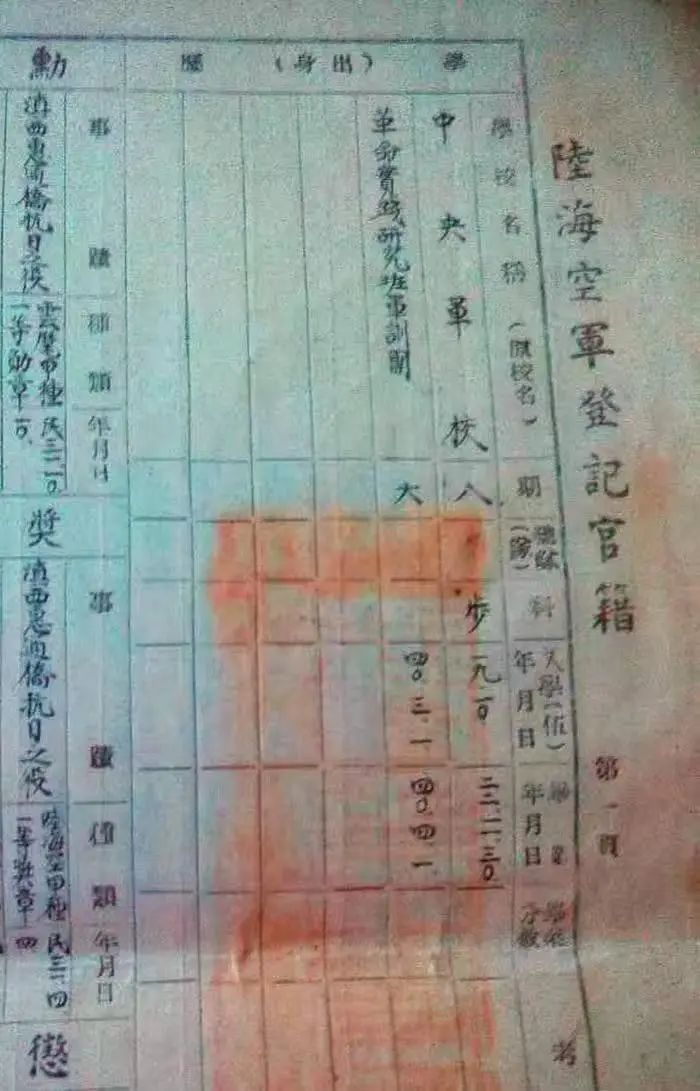 陸海空軍登記官籍
第一頁
學歷(出身)
學校名稱(原校名)
期
科
入學(伍)年月日
畢業年月日
學業分數
考
中央軍校
八
步
一九.一.〇
二二.一一.三〇
革命實踐研究班軍訓團
六
四〇.三.一
四〇.四.一.
勳
事蹟
種類
年月日
滇西惠通橋抗日之役
獎
事蹟
種類
年月日
滇西惠通橋抗日之役
陸海空甲種一等獎章
懲